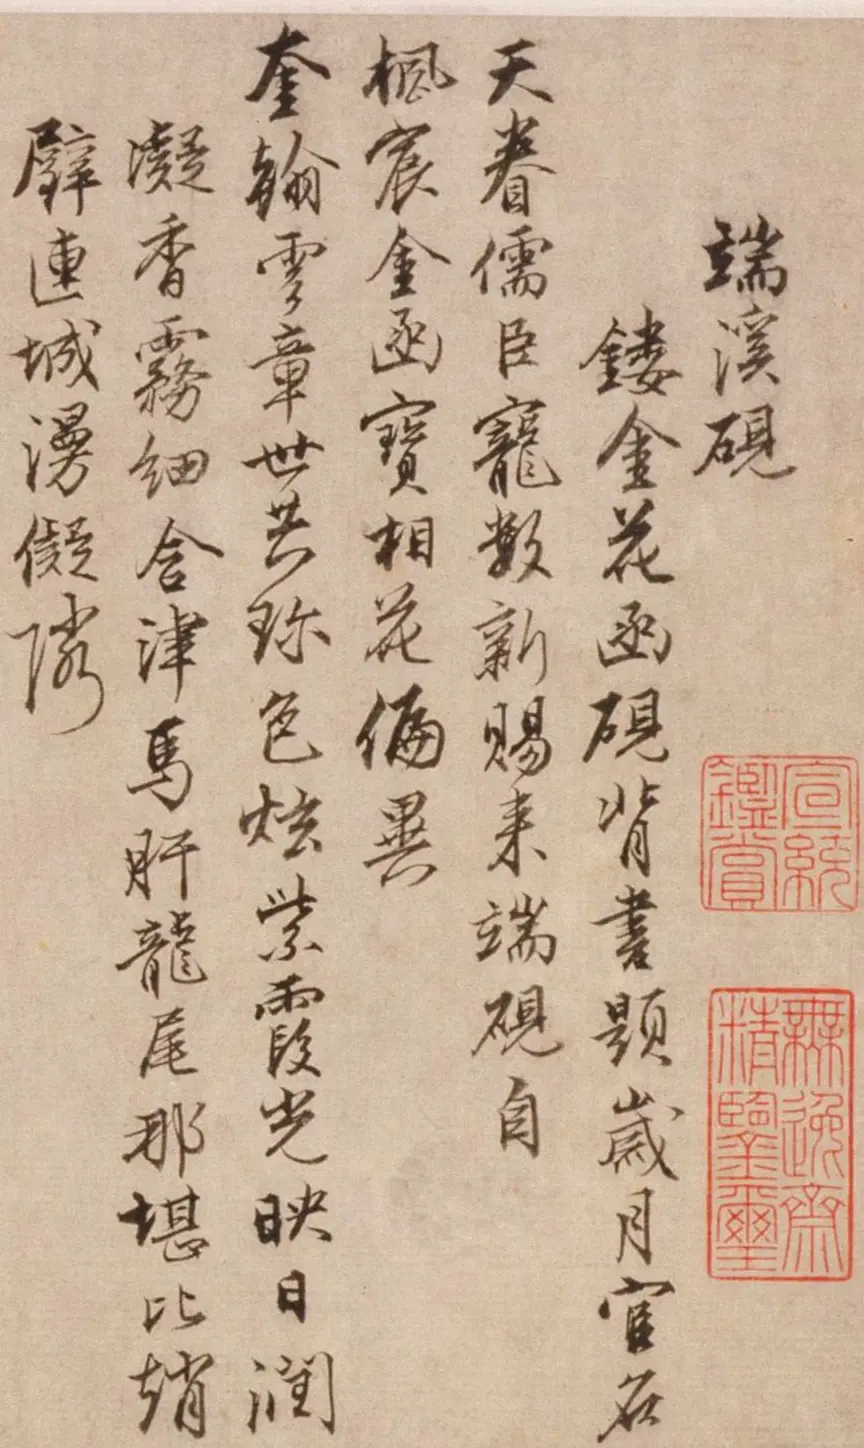 端溪硯
鏤金花函硯背書題歲月官名
天眷儒臣寵數新賜來端硯自
楓宸金函寶相花偏異
奎翰雲章世共珍色炫紫霞光映日潤
凝香霧細含津馬肝龍尾那堪比趙
璧連城漫儗隣
宣統
鑑賞
無逸齋
精鑒璽